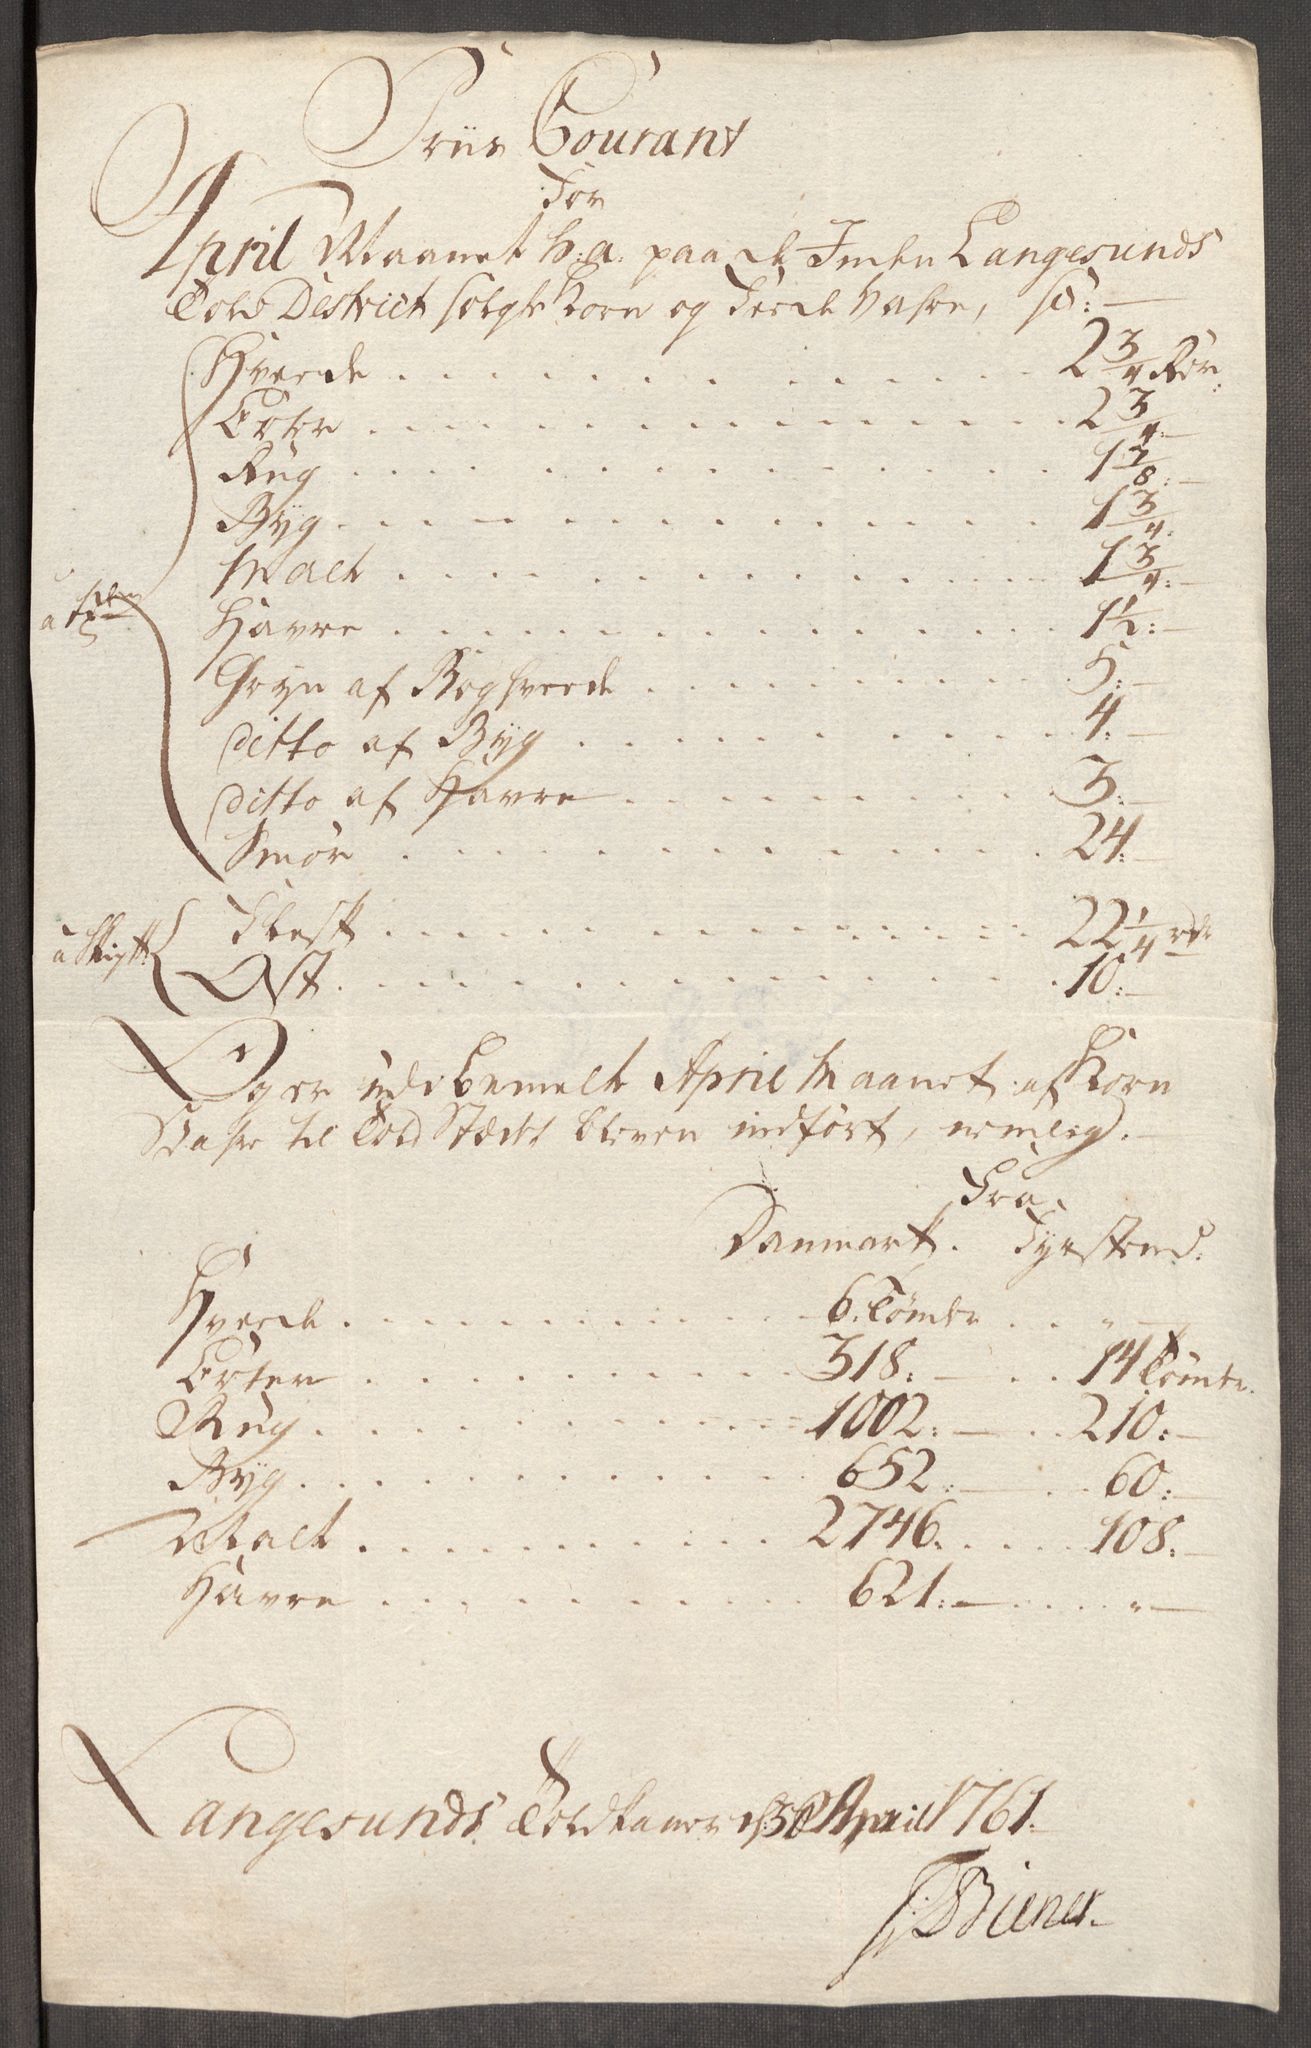 Priis Courant
for
April Maanet h: a: paa de Inden Langesunds
Told District solgte Korn og Feede Vahre,
Hveede 2 3/4 Rdr:
Erter 2 3/4:
Rug 1 7/8:
Byg 1 3/4:
Malt 1 3/4:
à Tønden
Havre 1 1/2:
Gryn af Boghveede 5:
Ditto af Byg 4:
Ditto af Havre 3:
Smør 24:
Flesk 22 1/4 rdr
à Skipd:
Ost 10:
Og er udi bemelte April Maanet af Korn
Vahre til Told Stædet bleven indført, nemlig.
Fra
Danmark. Tydskland:
Hveede 6. Tønder "
Erter 318: 14 Tønder.
Rug 1002: 210:
Byg 652: 60:
Malt 2746. 108:
Havre 621: "
Langesunds Toldkamer d: 30 April 1761.
Biener